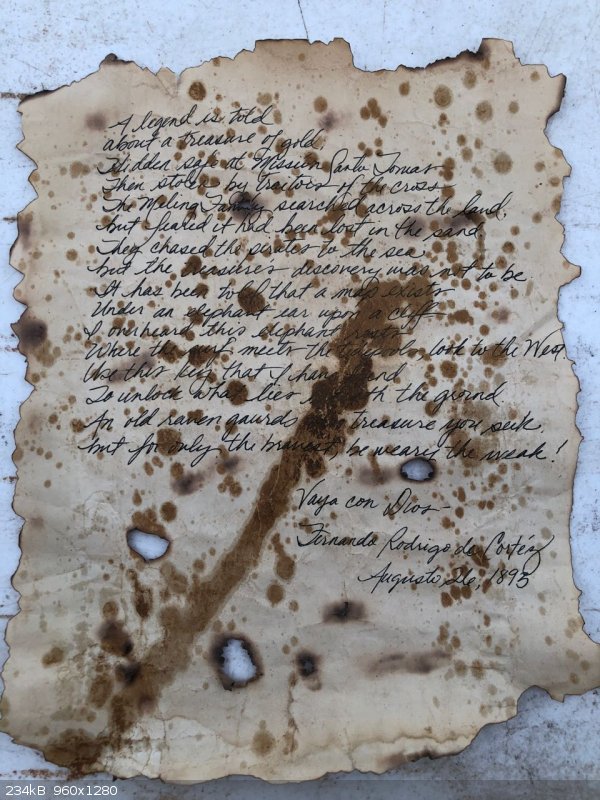 A legend is told
about a treasure of gold
Hidden safe at Mission Santo Tomas
Then stolen by traitors of the cross
The Meling Family searched across the land,
but feared it had been lost in the sand
They chased the pirates to the sea
but the treasure's discovery was not to be
It has been told that a map exists
Under an elephant ear upon a cliff
I overheard this elephant rests
Where the surf meets the look to the West
Use this key that I have
To unlock what lies the ground
An old raven gaurds treasure you seek
but for only the bravest, be weary the weak!
Vaya con Dios-
Fernando Rodrigo de Cortéz
Augusto 26, 1895
234kB 960x1280